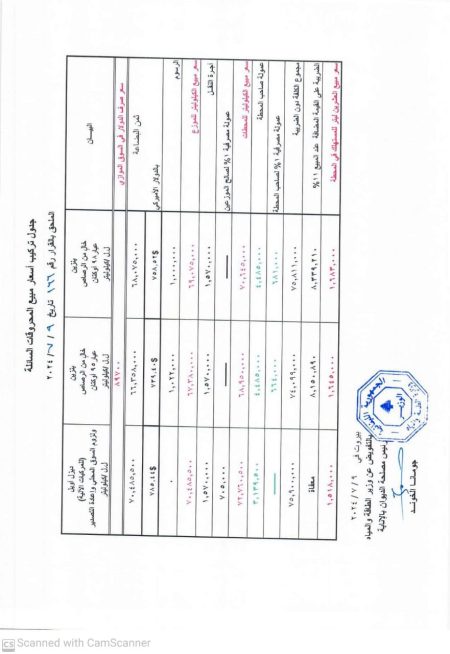 جدول تركيب أسعار مبيع المحروقات السائلة
الملحق بالقرار رقم ١٦٦ تاريخ ٩ / ٧ / ٢٠٢٤
البيان بنزين خالي من الرصاص عيار ٩٨ أوكتان ل.ل/كيلوليتر بنزين خالي من الرصاص عيار ٩٥ أوكتان ل.ل/كيلوليتر ديزل أويل (للمركبات الآلية) ولزوم السوق المحلي وإعادة التصدير ل.ل/كيلوليتر
سعر صرف الدولار في السوق الموازي ٨٩٧٠٠
ثمن البضاعة ٦٨,٠٧٥,٠٠٠ ٦٦,٣٥٨,٠٠٠ ٧٠,٤٨٥,٥٠٠
بالدولار الأميركي ٧٥٨.٥٢$ ٧٣٩.٤٠$ ٧٨٥.٤٤$
الرسوم ١,٠٠٠,٠٠٠ ١,٠٢٢,٠٠٠ ٠
سعر مبيع الكيلوليتر للموزع ٦٩,٠٧٥,٠٠٠ ٦٧,٣٨٠,٠٠٠ ٧٠,٤٨٥,٥٠٠
أجرة النقل ١,٥٧٠,٠٠٠ ١,٥٧٠,٠٠٠ ١,٥٧٠,٠٠٠
عمولة مصرفية ١% لصالح الموزعين ٧٠٥,٠٠٠
سعر مبيع الكيلوليتر للمحطات ٧٠,٦٤٥,٠٠٠ ٦٨,٩٥٠,٠٠٠ ٧٢,٧٦٠,٥٠٠
عمولة صاحب المحطة ٤,٤٨٥,٠٠٠ ٤,٤٨٥,٠٠٠ ٣,١٣٩,٥٠٠
عمولة مصرفية ١% لصاحب المحطة ٦٨١,٠٠٠ ٦٦٤,٠٠٠
مجموع الكلفة دون الضريبة ٧٥,٨١١,٠٠٠ ٧٤,٠٩٩,٠٠٠ ٧٥,٩٠٠,٠٠٠
الضريبة على القيمة المضافة عند المبيع ١١% ٨,٣٣٩,٢١٠ ٨,١٥٠,٨٩٠ معفاة
سعر مبيع العشرين ليتر للمستهلك في المحطة ١,٦٨٣,٠٠٠ ١,٦٤٥,٠٠٠ ١,٥١٨,٠٠٠
بيروت في ٩ / ٧ / ٢٠٢٤
بالتفويض عن وزير الطاقة والمياه
رئيس مصلحة الديوان بالإنابة
الجمهورية اللبنانية
الوزير
CS Scanned with CamScanner